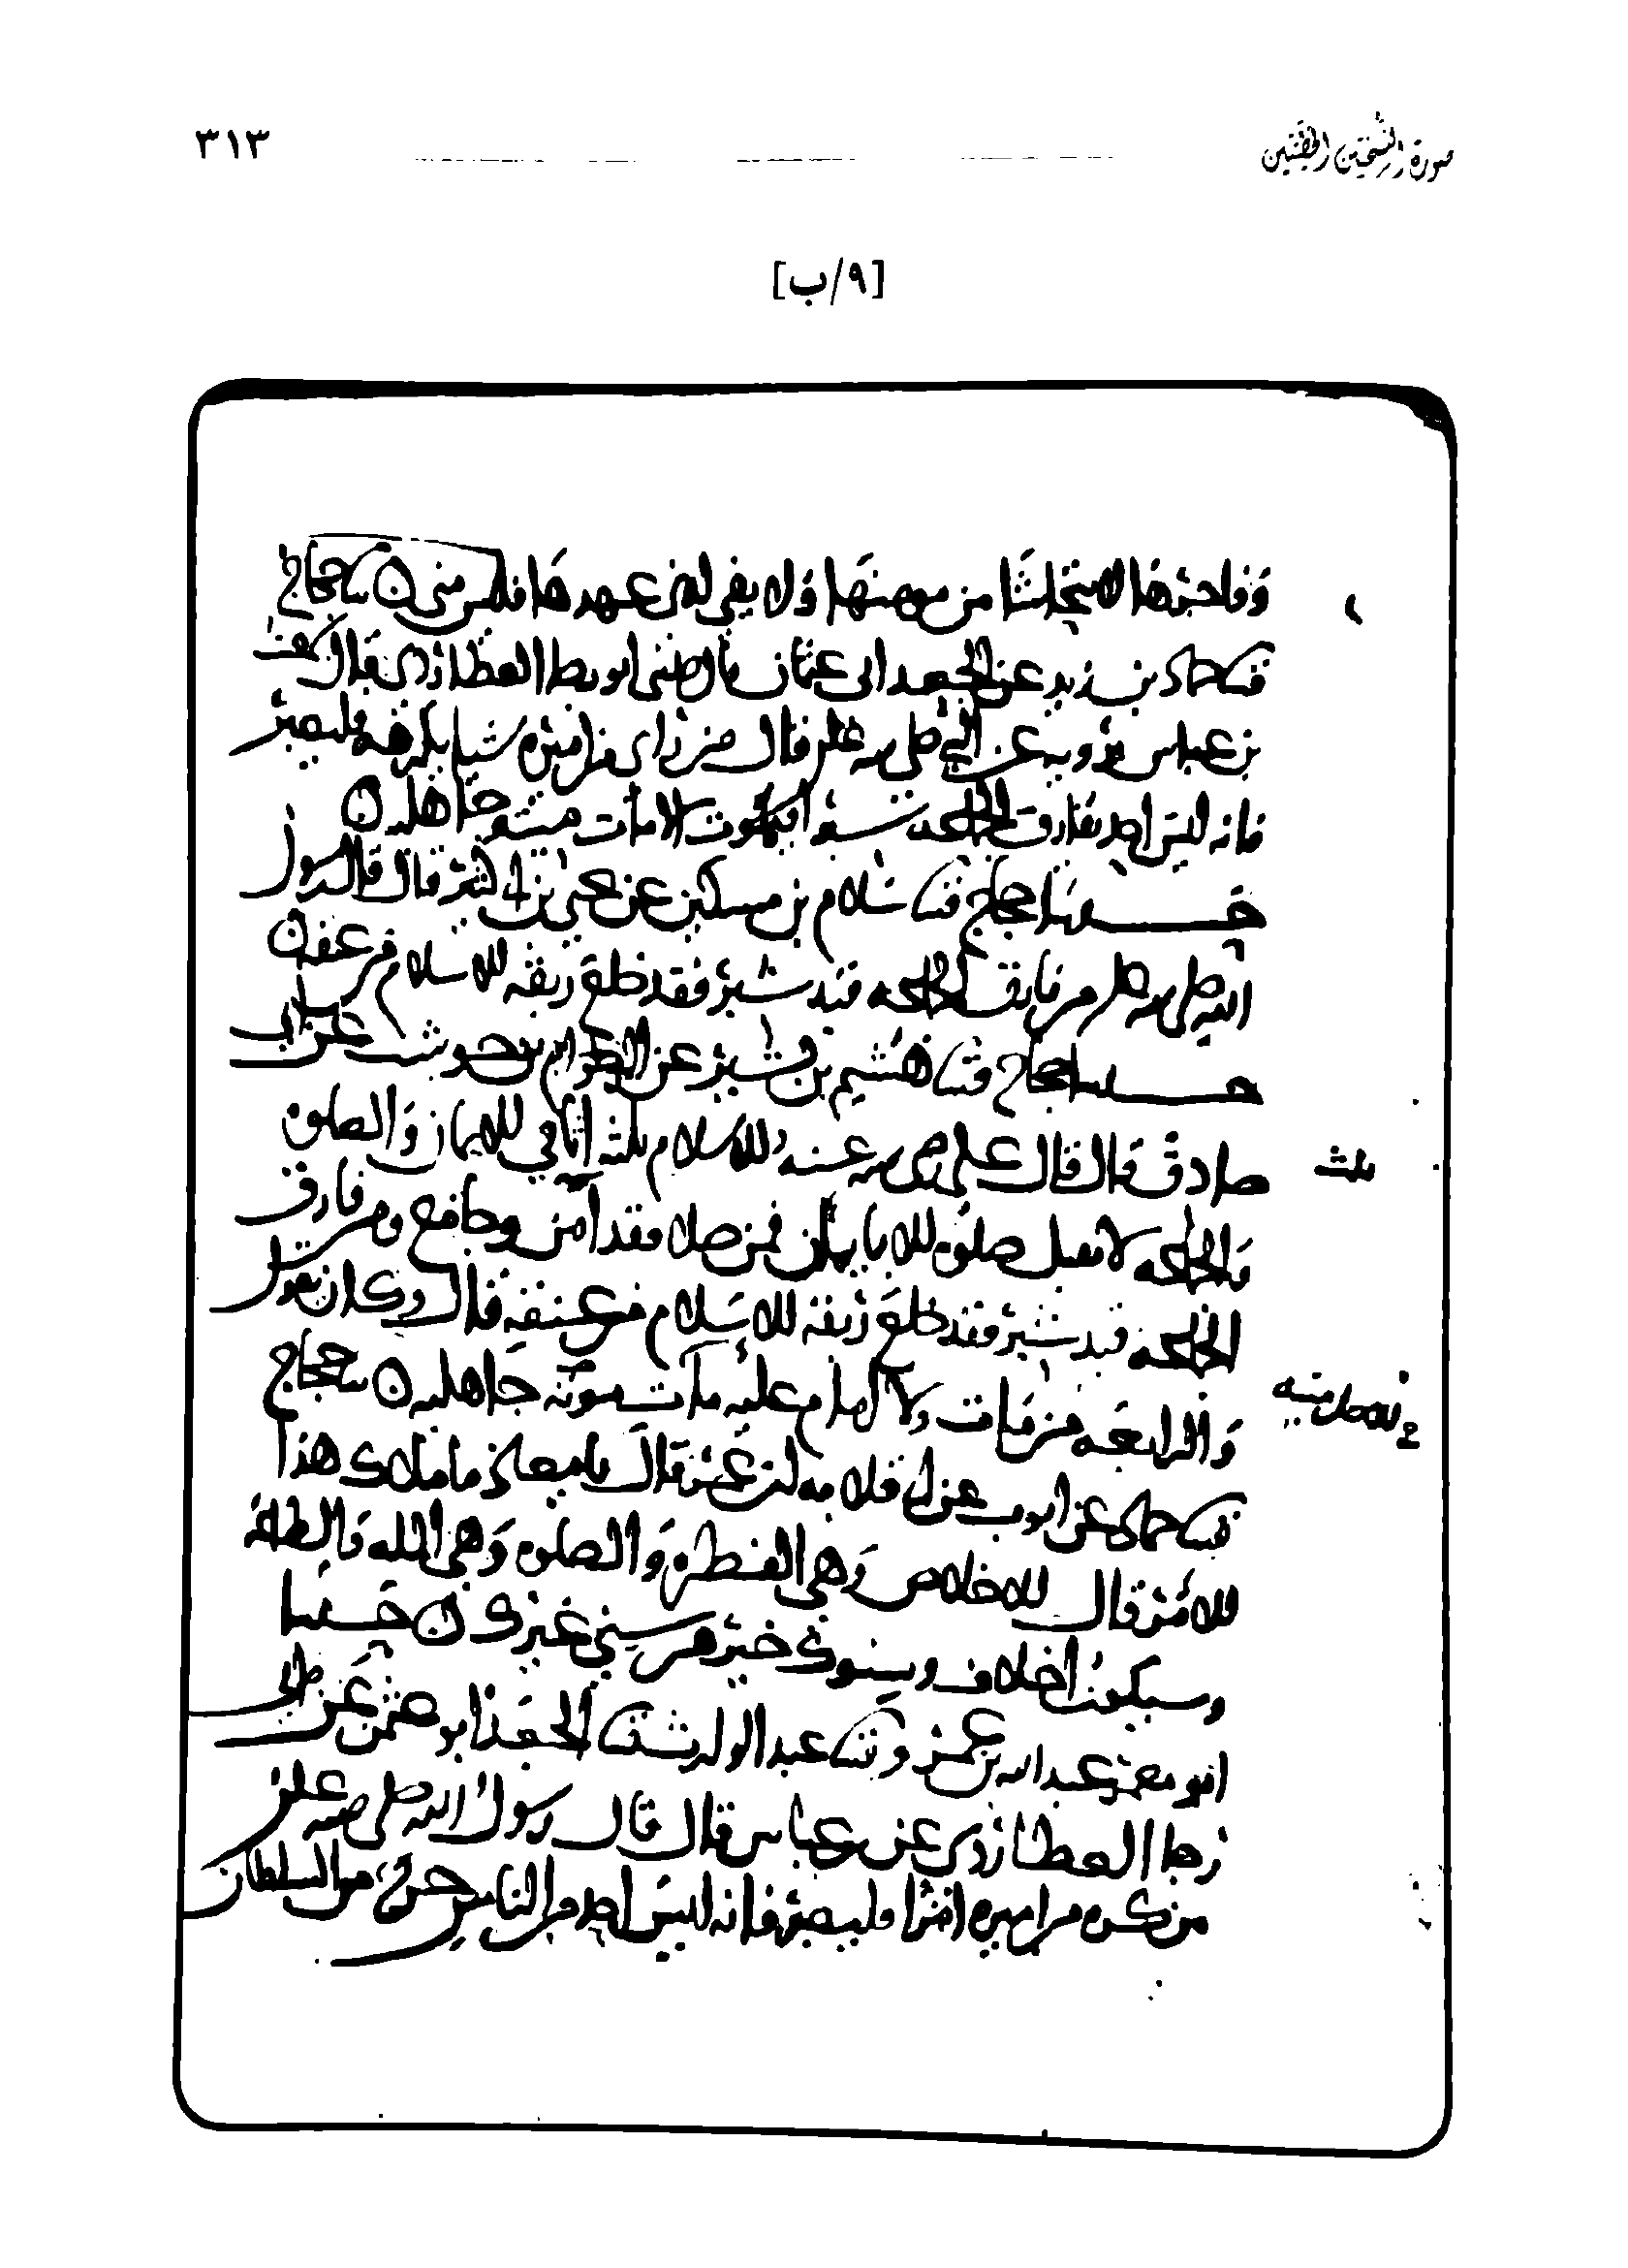 صورة النسختين الخطيتين
٣١٣
[٩/ب]
وفاجرها لا يتحاشا من مومنها ولا يفي لذي عهدها فليس مني ن حجاج
حماد بن زيد عن الجعد ابي عثمان قال حدثني ابو رجا العطاردي قال سمعت
بن عباس يرويه عن النبي صلى الله عليه قال من راى من اميره شيا يكرهه فليصبر
فانه ليس احد يفارق الجماعة شبرا فيموت الا مات ميتة جاهلية ن
حجاج سلام بن مسكين عن يحيى بن ابي كثير قال قال رسول
الله صلى الله عليه من فارق الجماعة قيد شبر فقد خلع ربقة الاسلام من عنقه ن
حجاج هشيم بن بشير عن العوام بن حوشب عن ابي
صادق قال قال علي رضي الله عنه الاسلام ثلثة اثافي الايمان والصلوة
والجماعة لا تقبل صلوة الا بايمان فمن صلا فقد آمن وجامع ومن فارق
الجماعة قيد شبر فقد خلع ربقة الاسلام من عنقه قال وكان يقول
والرابعة من مات ولا امام عليه مات موتة جاهلية ن حجاج
حماد عن ايوب عن ابي قلابه ان عمر قال يا معاذ ما ملاك هذا
الامر قال الاخلاص وهي الفطرة والصلوة وهي الملة والطاعة
وسيكون اختلاف وسنوك خير من سني غيرك ن
ابو معمر عبد الله بن عمر و عبد الوارث الجعد ابو عثمن عن ابي
رجا العطاردي عن بن عباس قال قال رسول الله صلى الله عليه
من كره من اميره امرا فليصبر فانه ليس احد من الناس خرج من السلطان
ثلث